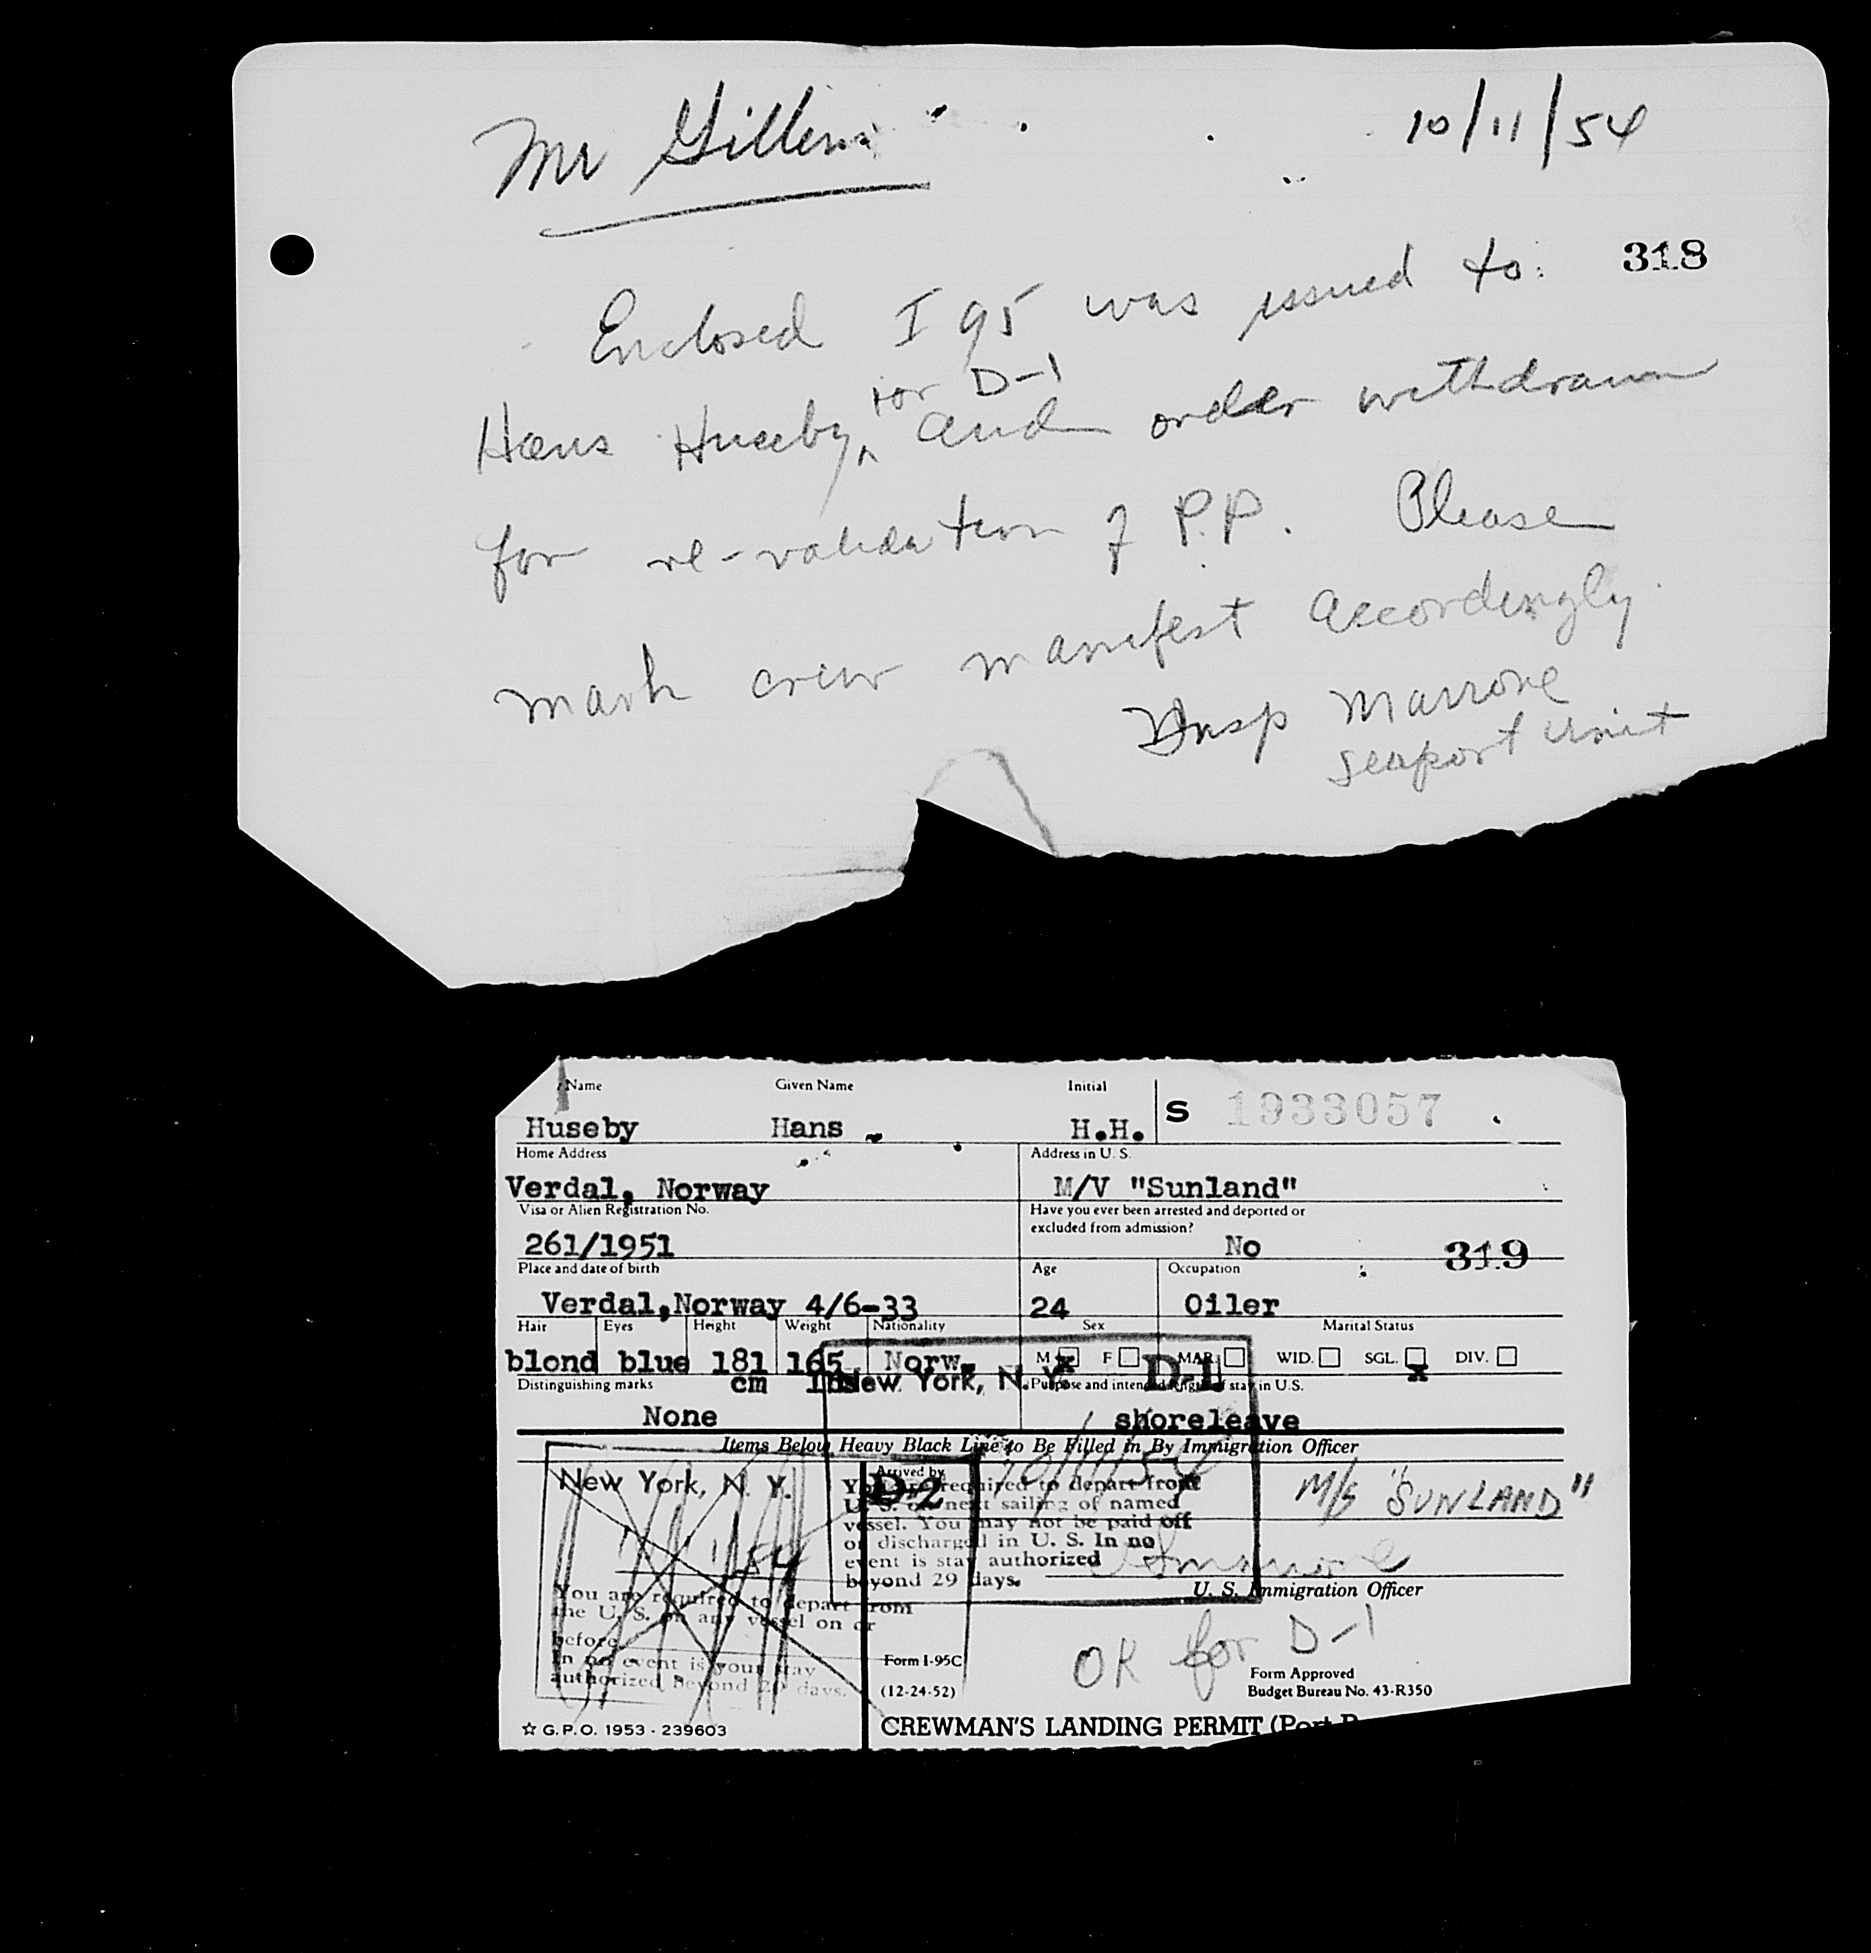 Mr Gillen
10/11/54
318
Enclosed I 95 was issued to:
for D-1
Hans Huseby, and order withdrawn
for re-validation of P.P. Please
mark crew manifest accordingly
Insp Marrone
seaport unit
Name Given Name Initial
Huseby Hans H.H. S 1933057
Home Address Address in U. S.
Verdal, Norway M/V "Sunland"
Visa or Alien Registration No. Have you ever been arrested and deported or
excluded from admission?
261/1951 No 319
Place and date of birth Age Occupation
Verdal,Norway 4/6-33 24 Oiler
Hair Eyes Height Weight Nationality Sex Marital Status
blond blue 181 165 Norw. M x F MAR. WID. SGL. x DIV.
cm lbs
New York, N. Y. D-1
Distinguishing marks Purpose and intended length of stay in U.S.
None shoreleave
Items Below Heavy Black Line to Be Filled in By Immigration Officer
New York, N. Y. D-2
Arrived by
M/S "SUNLAND"
10/11/54
You are required to depart from
U. S. on next sailing of named
vessel. You may not be paid off
or discharged in U. S. In no
event is stay authorized
beyond 29 days.
U. S. Immigration Officer
54
You are required to depart from
the U. S. on any vessel on or
before
In no event is your stay
authorized beyond 29 days.
OK for D-1
Form I-95C
(12-24-52)
Form Approved
Budget Bureau No. 43-R350
☆ G.P.O. 1953 - 239603
CREWMAN'S LANDING PERMIT (Port